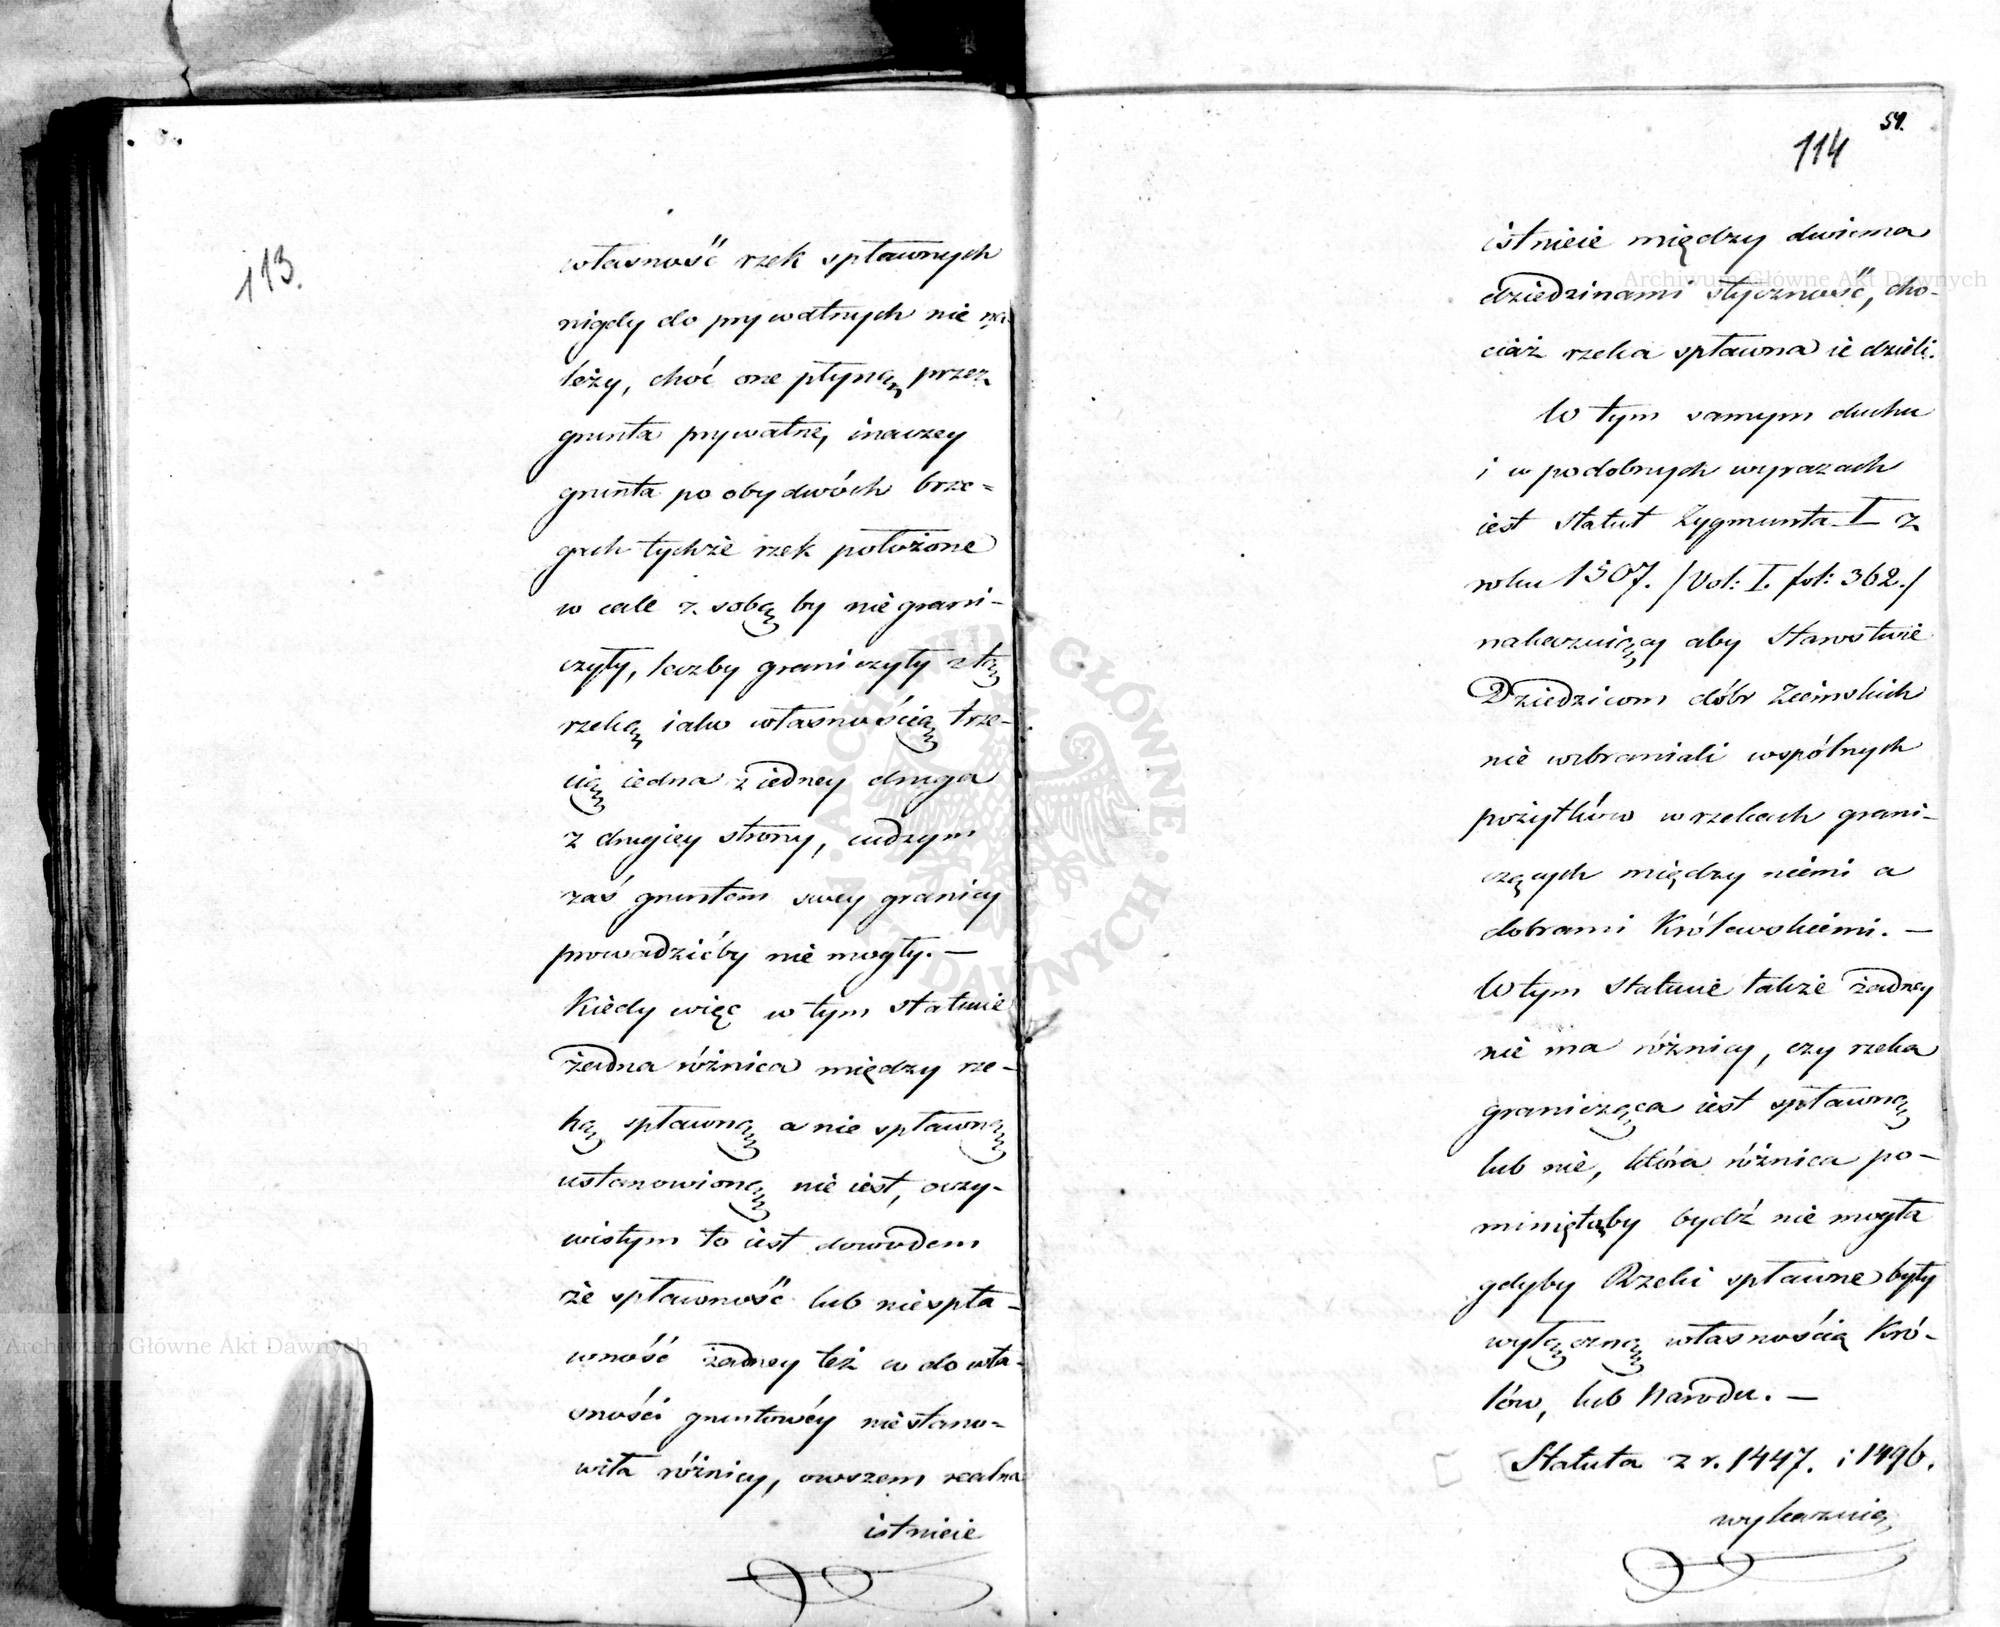 113.
własność rzek spławnych
nigdy do prywatnych nie na
leży, choć one płyną przez
grunta prywatne, inaczey
grunta po obydwóch brze=
gach tychże rzek położone
w cale z sobą by nie grani-
czyły, leczby graniczyły z tą
rzeką iako własnością trze-
cią iedna z iedney druga
z drugiey strony, cudzym
zaś gruntem swey granicy
prowadzićby nie mogły. —
Kiedy więc w tym statucie
żadna różnica między rze-
ką spławną a nie spławną
ustanowioną nie iest, oczy-
wistym to iest dowodem
że spławność lub niespła-
wność żadney też w do wła-
sności gruntowéy nie stano=
wiła różnicy, owszem realna
istnieie
114
istnieie między dwiema
dziedzinami styczność, cho-
ciaż rzeka spławna ie dzieli.
W tym samym duchu
i w podobnych wyrazach
iest Statut Zygmunta I z
roku 1507. /Vol: I. fol: 362./
nakazuiący aby Starostwie
Dziedzicom dóbr Ziemskich
nie wzbraniali wspólnych
pożytków w rzekach grani-
czących między niemi a
dobrami Królewskiemi. —
W tym Statucie także żadney
nie ma różnicy, czy rzeka
granicząca iest spławną
lub nie, która różnica po-
miniętąby bydź nie mogła
gdyby Rzeki spławne były
wyłączną własnością Kró-
lów, lub Narodu. —
Statuta z r. 1447. i 1496.
wykazuią
Archiwum Główne Akt Dawnych
Archiwum Główne Akt Dawnych
ARCHIWUM GŁÓWNE AKT DAWNYCH